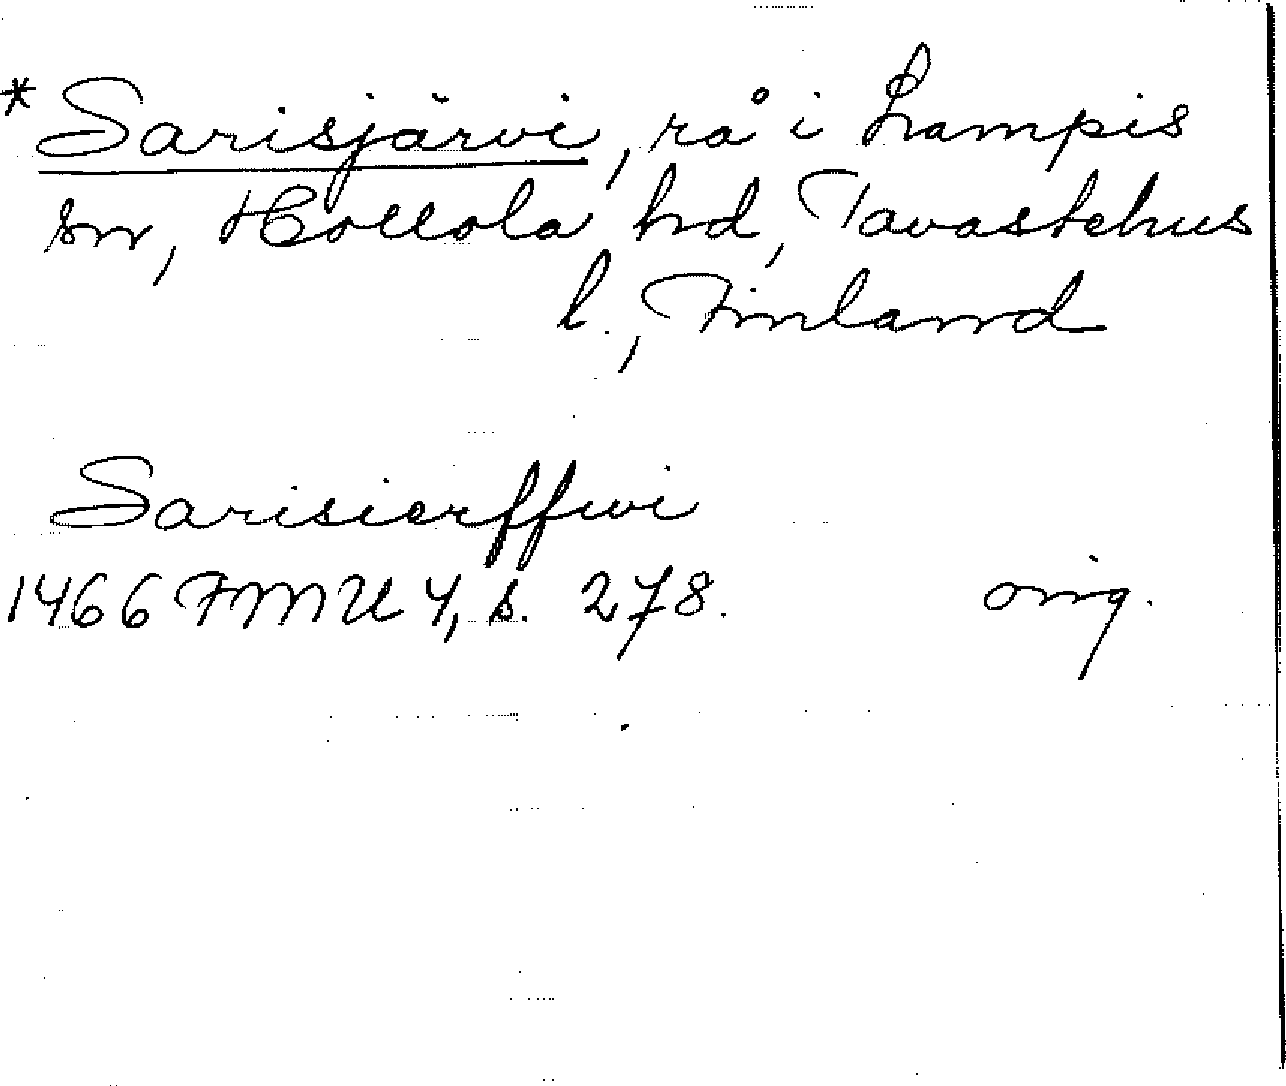 *Sarisjärvi, rå i Lampis
sn, Hollola hd, Tavastehus
l., Finland
Sarisierffwi
1466 FMU 4, s. 278. orig.